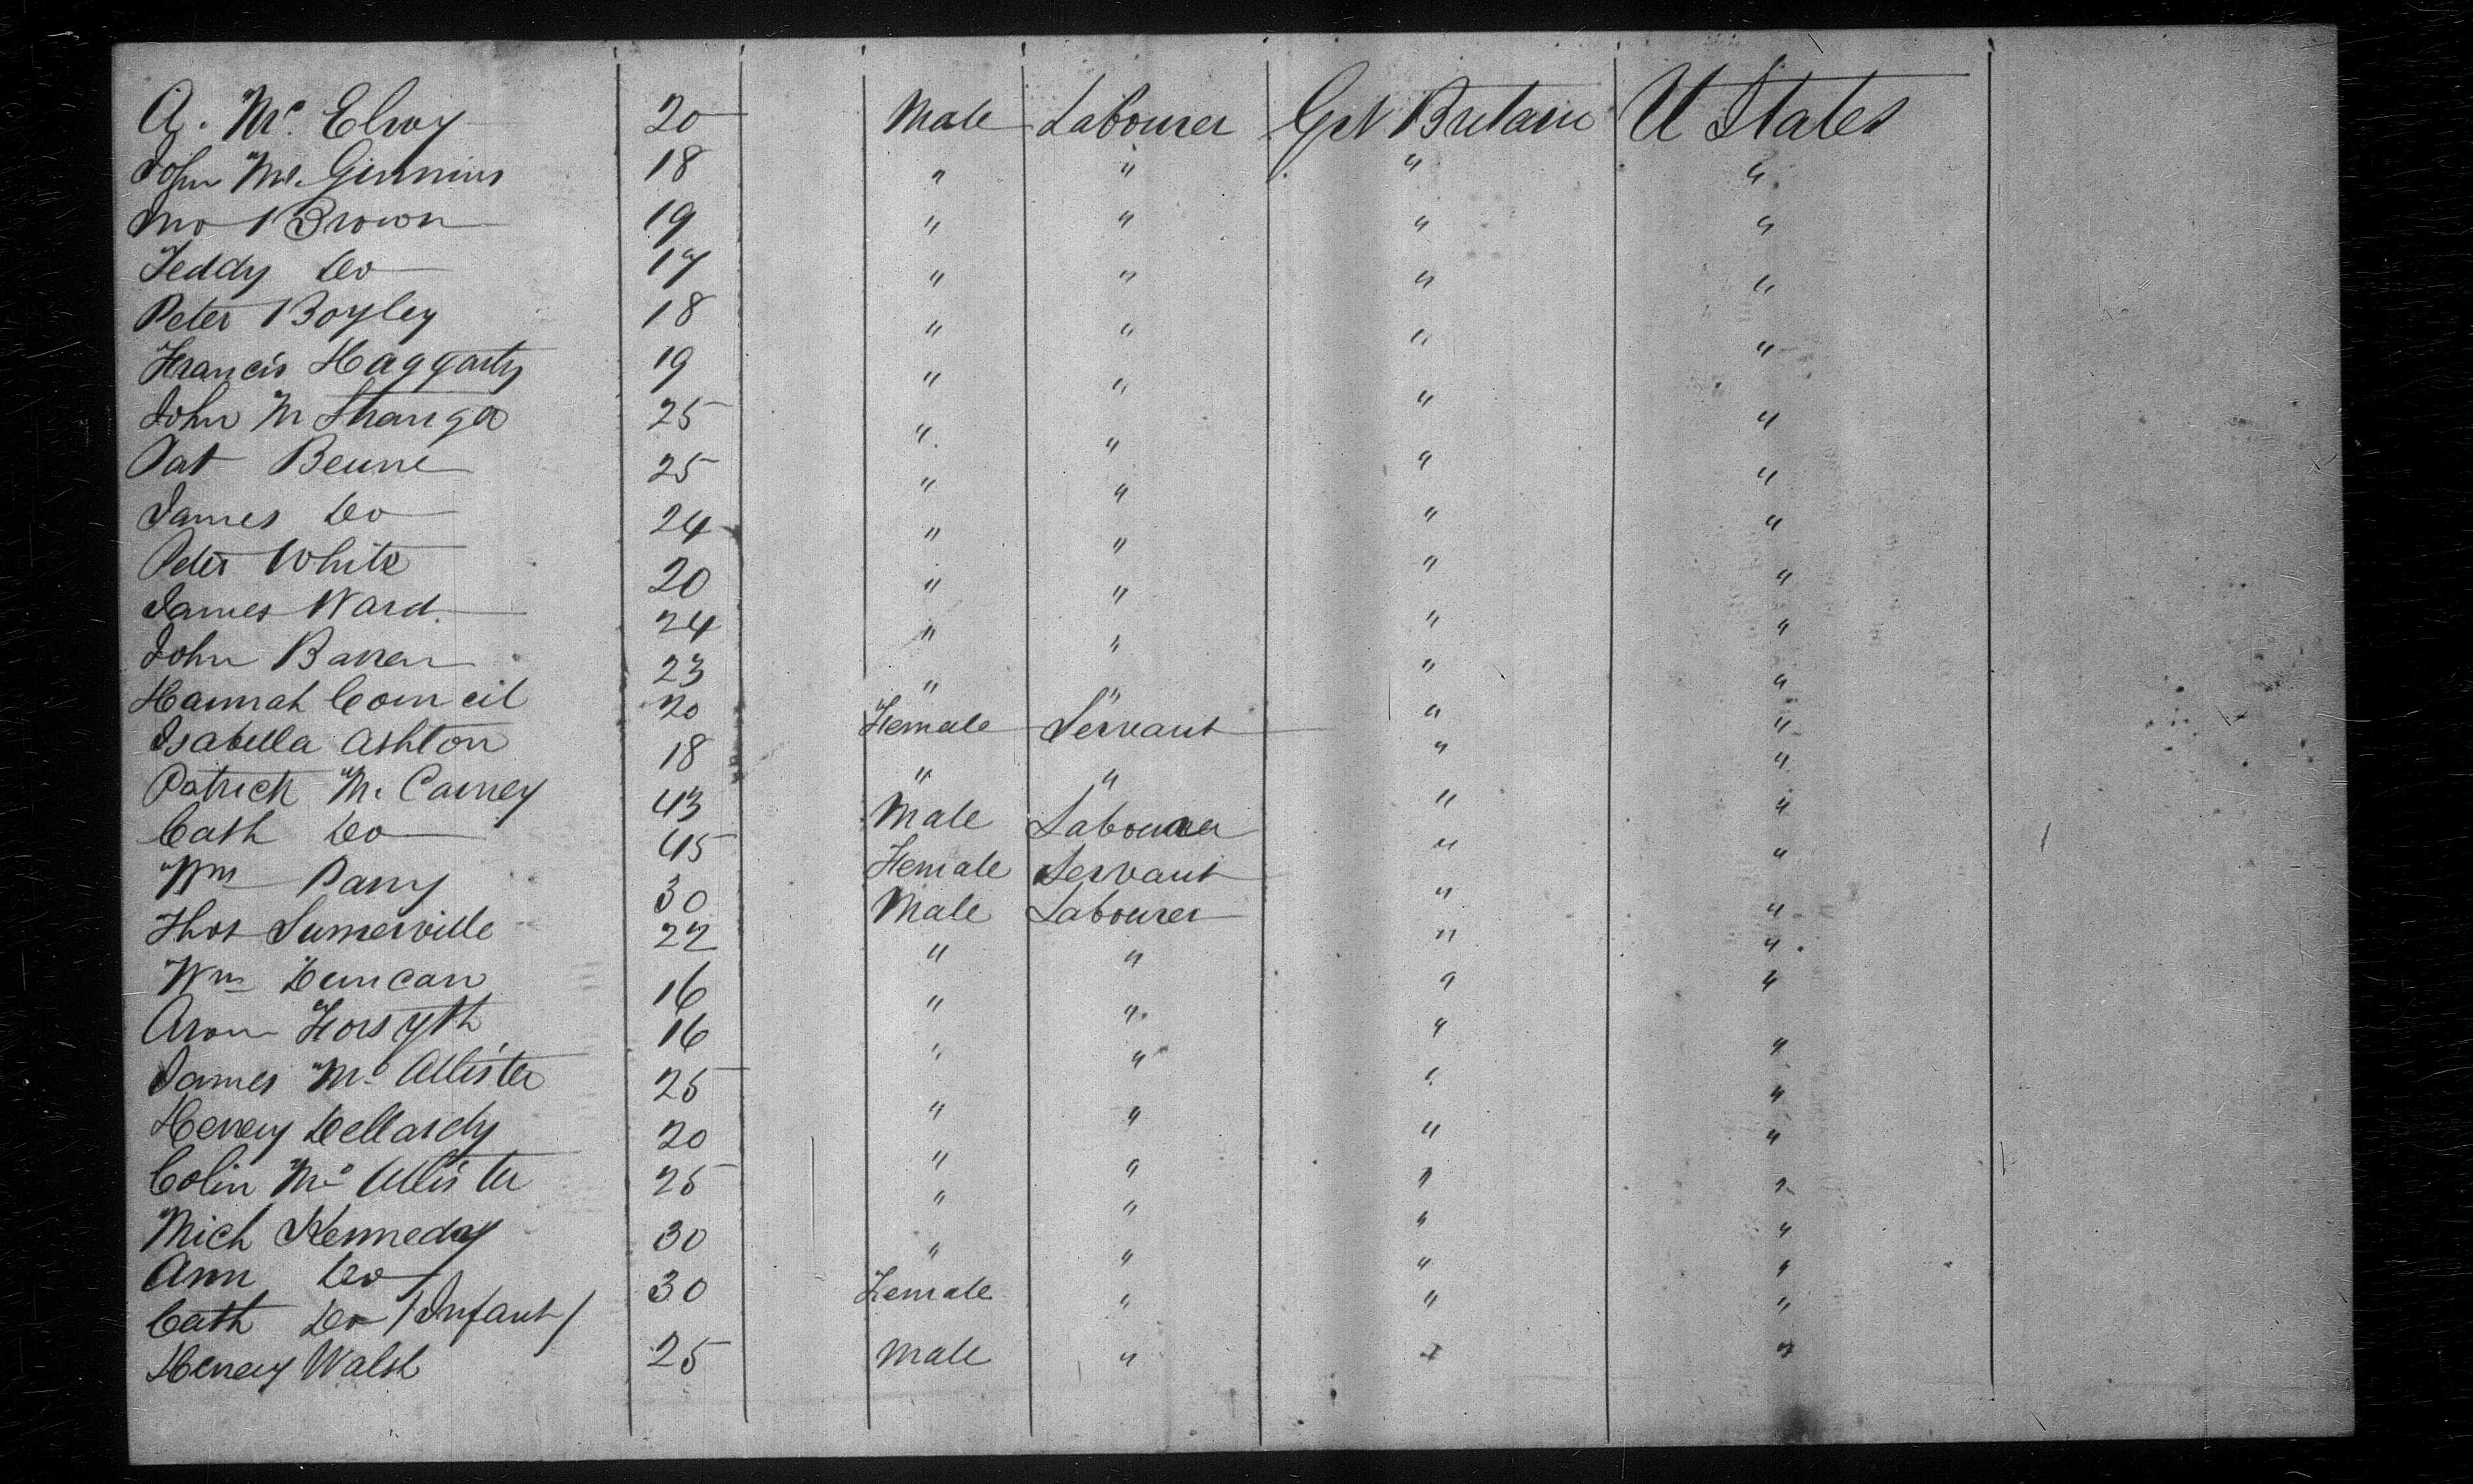 A. Mc. Elroy 20 Male Labourer Gt Britain U States
John Mc. Ginnins 18 " " " "
Jno Brown 19 " " " "
Teddy Do 17 " " " "
Peter Boyley 18 " " " "
Francis Haggarty 19 " " " "
John M Shanga 25 " " " "
Pat Beune 25 " " " "
James Do 24 " " " "
Peter White 20 " " " "
James Ward. 24 " " " "
John Barren 23 " " " "
Hannah Council 20 Female Servant " "
Isabella Ashton 18 " " " "
Patrick Mc. Carney 43 Male Labourer " "
Cath Do 45 Female Servant " "
Wm Parry 30 Male Labourer " "
Thos Sumerville 22 " " " "
Wm Duncan 16 " " " "
Aron Forsyth 16 " " " "
James Mc Allister 25 " " " "
Henery Dellardy 20 " " " "
Colin Mc Allister 25 " " " "
Mich Kenneday 30 " " " "
Ann Do 30 Female " " "
Cath Do /Infant/
Henery Walsh 25 Male " " "